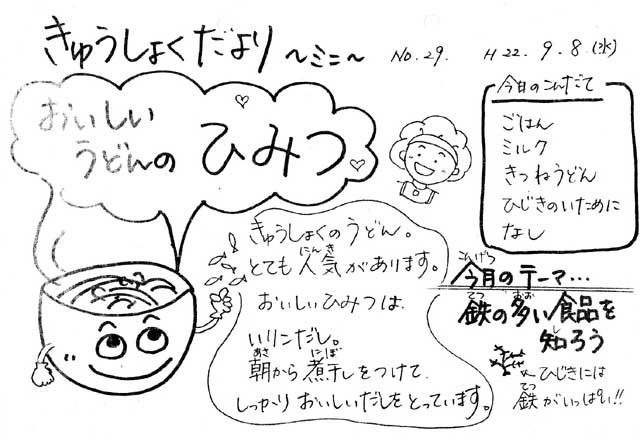 きゅうしょくだより ～ミニ～ No.29. H22.9.8(水)
おいしい
うどんの ひみつ
今日のこんだて
ごはん
ミルク
きつねうどん
ひじきのいために
なし
きゅうしょくのうどん。
とても人気があります。
にんき
おいしいひみつは
いりこだし。
朝から煮干しをつけて、
あさ にぼ
しっかりおいしいだしをとっています。
今月のテーマ…
こんげつ
鉄の多い食品を
てつ おお
知ろう
し
←ひじきには
鉄がいっぱい!!
てつ